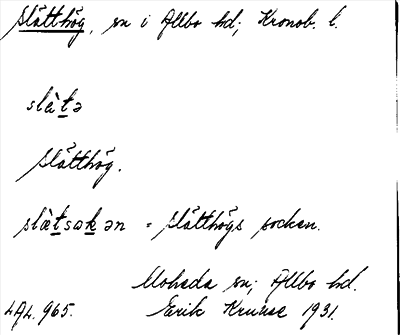 Slätthög, sn i Allbo hd; Kronob. l.
slàtə
Slätthög.
slàtsokən = Slätthögs socken.
Moheda sn; Allbo hd.
LAL. 965. Erik Kruuse 1931.